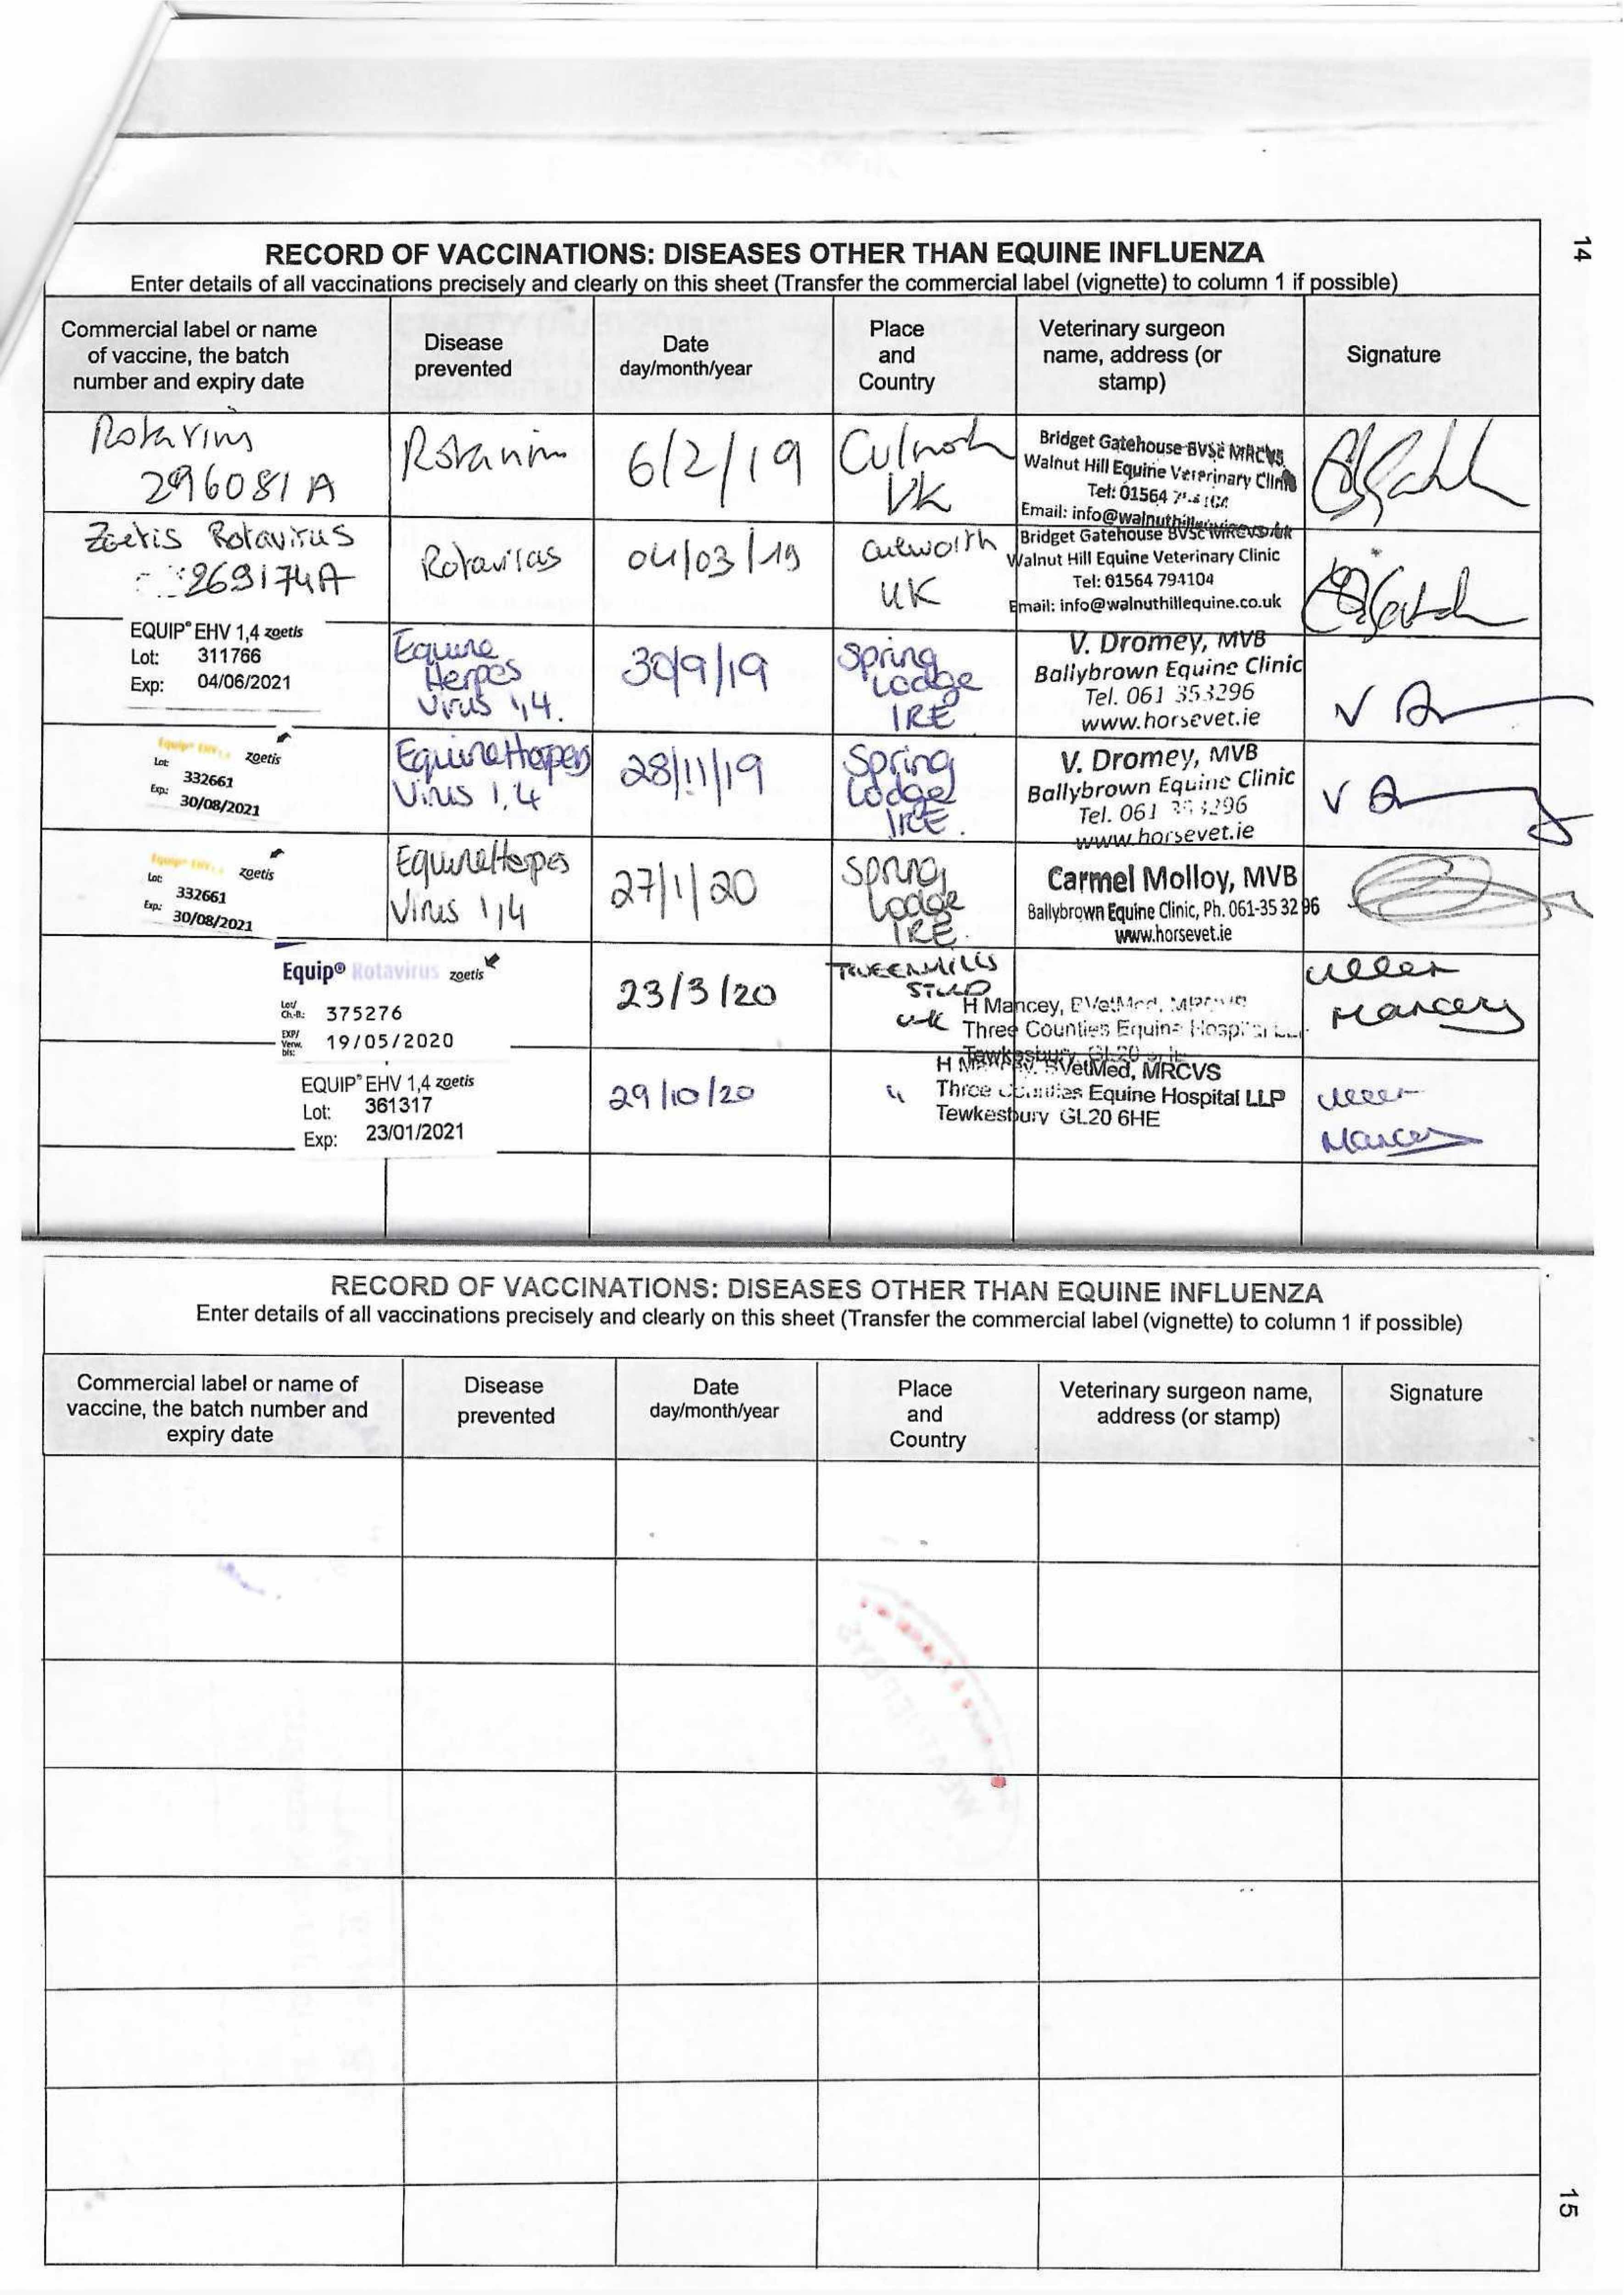 14
RECORD OF VACCINATIONS: DISEASES OTHER THAN EQUINE INFLUENZA
Enter details of all vaccinations precisely and clearly on this sheet (Transfer the commercial label (vignette) to column 1 if possible)
Commercial label or name
of vaccine, the batch
number and expiry date
Disease
prevented
Date
day/month/year
Place
and
Country
Veterinary surgeon
name, address (or
stamp)
Signature
296081A
6/2/19
UK
Bridget Gatehouse BVSc MRCVS
Walnut Hill Equine Veterinary Clinic
Tel: 01564
Email: info@walnuthillequine.co.uk
Zoetis Rotavirus
269174A
04/03/19
Culworth
UK
Bridget Gatehouse BVSc MRCVS
Walnut Hill Equine Veterinary Clinic
Tel: 01564 794104
Email: info@walnuthillequine.co.uk
EQUIP® EHV 1,4 zoetis
Lot: 311766
Exp: 04/06/2021
Equine
Herpes
Virus 1,4.
30/9/19
Spring
Lodge
IRE
V. Dromey, MVB
Ballybrown Equine Clinic
Tel. 061 353296
www.horsevet.ie
Equip® EHV zoetis
Lot: 332661
Exp: 30/08/2021
Equine Herpes
Virus 1,4
28/11/19
Spring
Lodge
IRE.
V. Dromey, MVB
Ballybrown Equine Clinic
Tel. 061 353296
www.horsevet.ie
Equip® EHV zoetis
Lot: 332661
Exp: 30/08/2021
Equine Herpes
Virus 1,4
27/1/20
Spring
Lodge
IRE.
Carmel Molloy, MVB
Ballybrown Equine Clinic, Ph. 061-35 32 96
www.horsevet.ie
Equip® Rotavirus zoetis
Lot/
Ch.-B.: 375276
EXP/
Verw.
bis: 19/05/2020
23/3/20
STUD
UK
H Mancey, BVetMed, MRCVS
Three Counties Equine Hospital LLP
Tewkesbury GL20
Mancey
EQUIP® EHV 1,4 zoetis
Lot: 361317
Exp: 23/01/2021
29/10/20
"
H Mancey, BVetMed, MRCVS
Three Counties Equine Hospital LLP
Tewkesbury GL20 6HE
Mancey
RECORD OF VACCINATIONS: DISEASES OTHER THAN EQUINE INFLUENZA
Enter details of all vaccinations precisely and clearly on this sheet (Transfer the commercial label (vignette) to column 1 if possible)
Commercial label or name of
vaccine, the batch number and
expiry date
Disease
prevented
Date
day/month/year
Place
and
Country
Veterinary surgeon name,
address (or stamp)
Signature
15